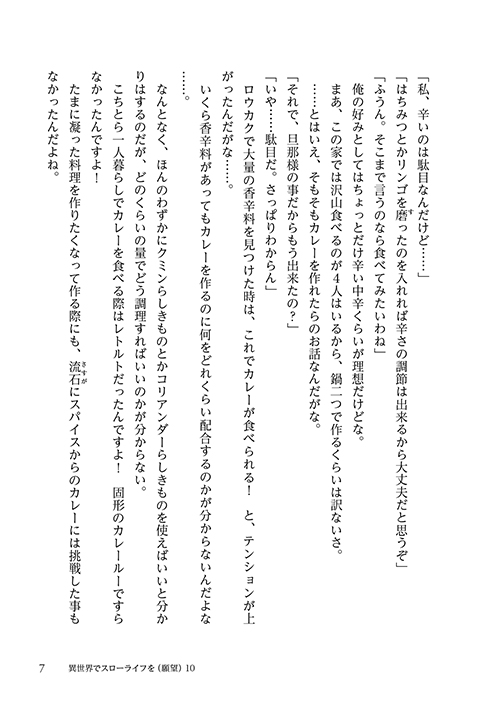 「私、辛いのは駄目なんだけど……」
「はちみつとかリンゴを磨ったのを入れれば辛さの調節は出来るから大丈夫だと思うぞ」
「ふうん。そこまで言うのなら食べてみたいわね」
俺の好みとしてはちょっとだけ辛い中辛くらいが理想だけどな。
まあ、この家では沢山食べるのが４人はいるから、鍋二つで作るくらいは訳ないさ。
……とはいえ、そもそもカレーを作れたらのお話なんだがな。
「それで、旦那様の事だからもう出来たの？」
「いや……駄目だ。さっぱりわからん」
ロウカクで大量の香辛料を見つけた時は、これでカレーが食べられる！　と、テンションが上
がったんだがな……。
いくら香辛料があってもカレーを作るのに何をどれくらい配合するのかが分からないんだよな
……。
なんとなく、ほんのわずかにクミンらしきものとかコリアンダーらしきものを使えばいいと分か
りはするのだが、どのくらいの量でどう調理すればいいのかが分からない。
こちとら一人暮らしでカレーを食べる際はレトルトだったんですよ！　固形のカレールーですら
なかったんですよ！
たまに凝った料理を作りたくなって作る際にも、流石にスパイスからのカレーには挑戦した事も
なかったんだよね。
7　異世界でスローライフを（願望）10